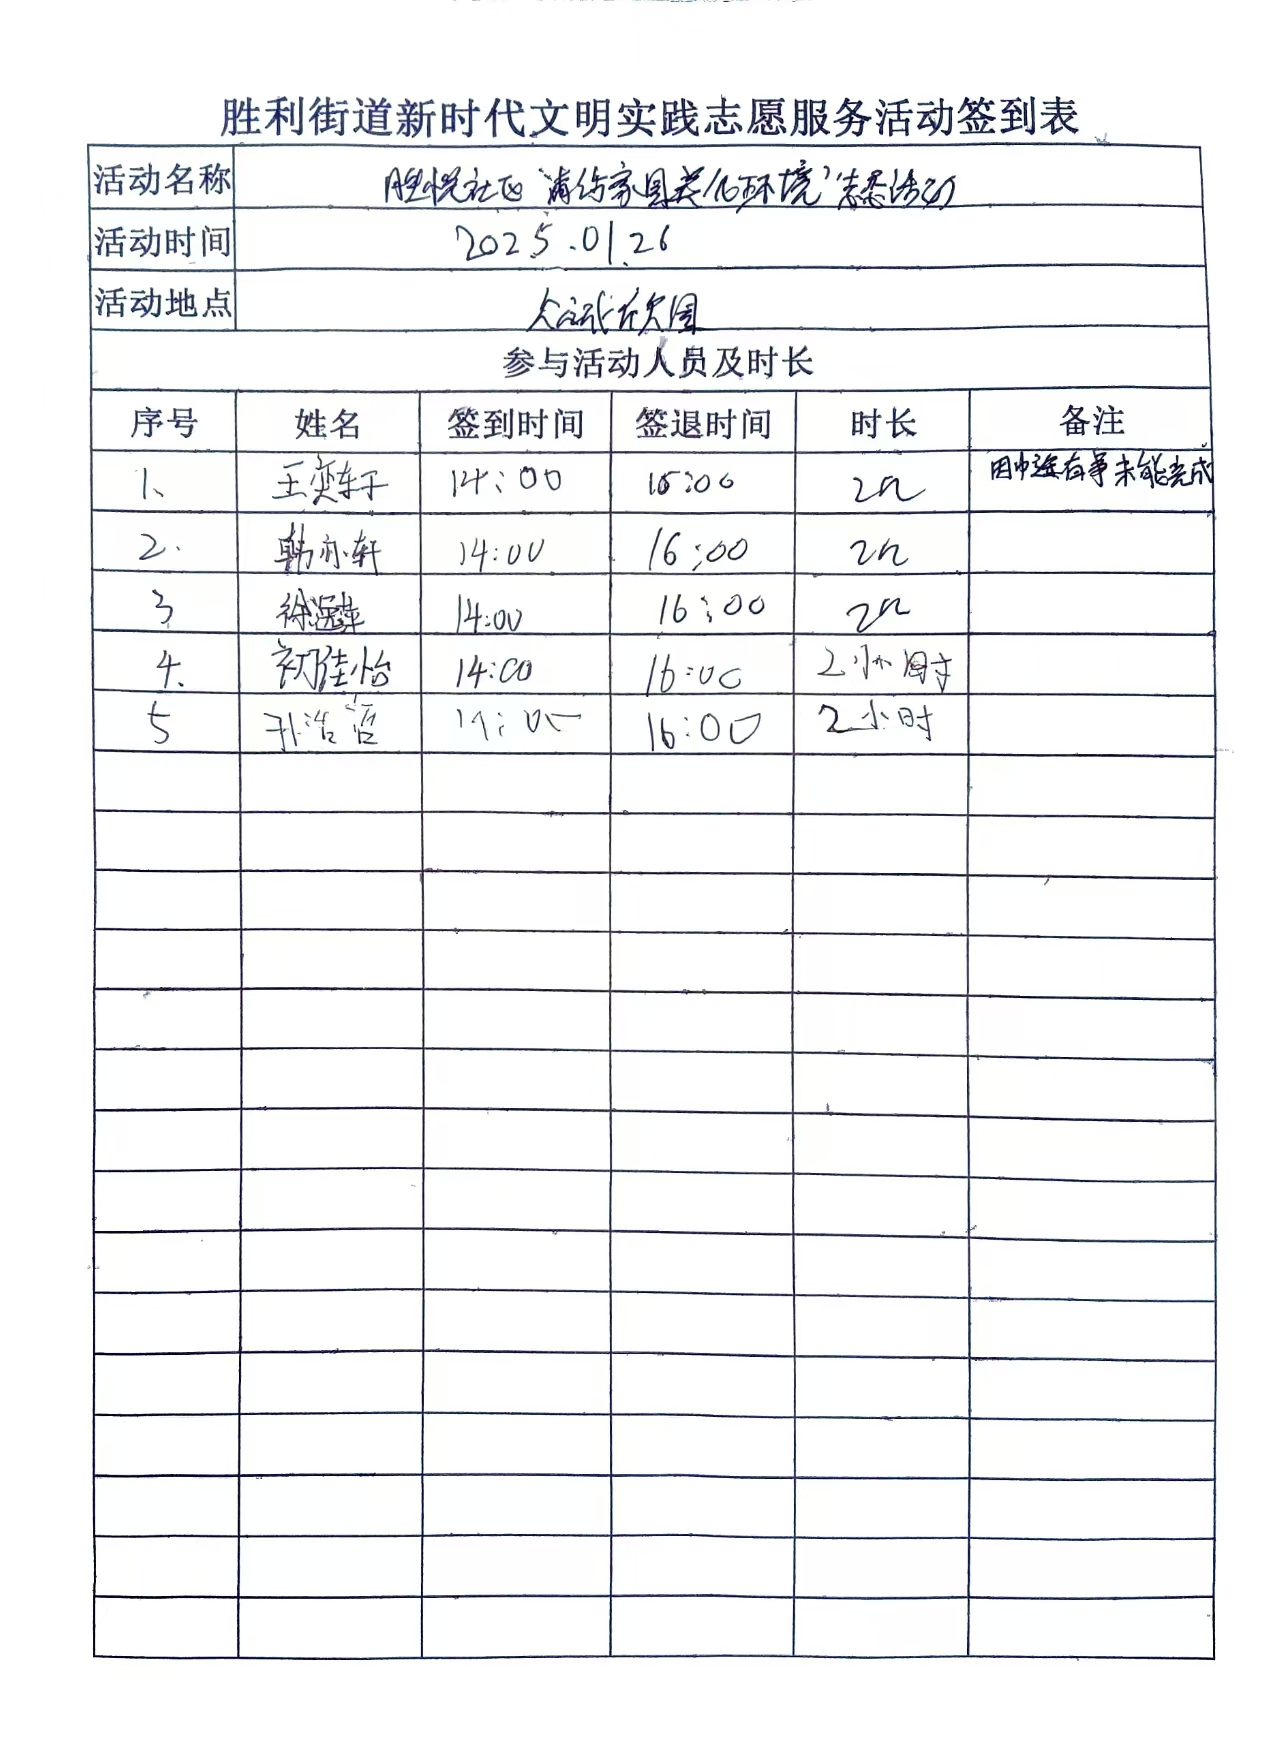 胜利街道新时代文明实践志愿服务活动签到表
活动名称 胜悦社区“清侉家具美化环境”志愿活动
活动时间 2025.01.26
活动地点
参与活动人员及时长
序号 姓名 签到时间 签退时间 时长 备注
1、 王奕轩 14:00 15:00 2h 因中途有事未能完成
2. 韩亦轩 14:00 16:00 2h
3 14:00 16:00 2h
4. 初佳怡 14:00 16:00 2小时
5 孙浩 14:00 16:00 2小时